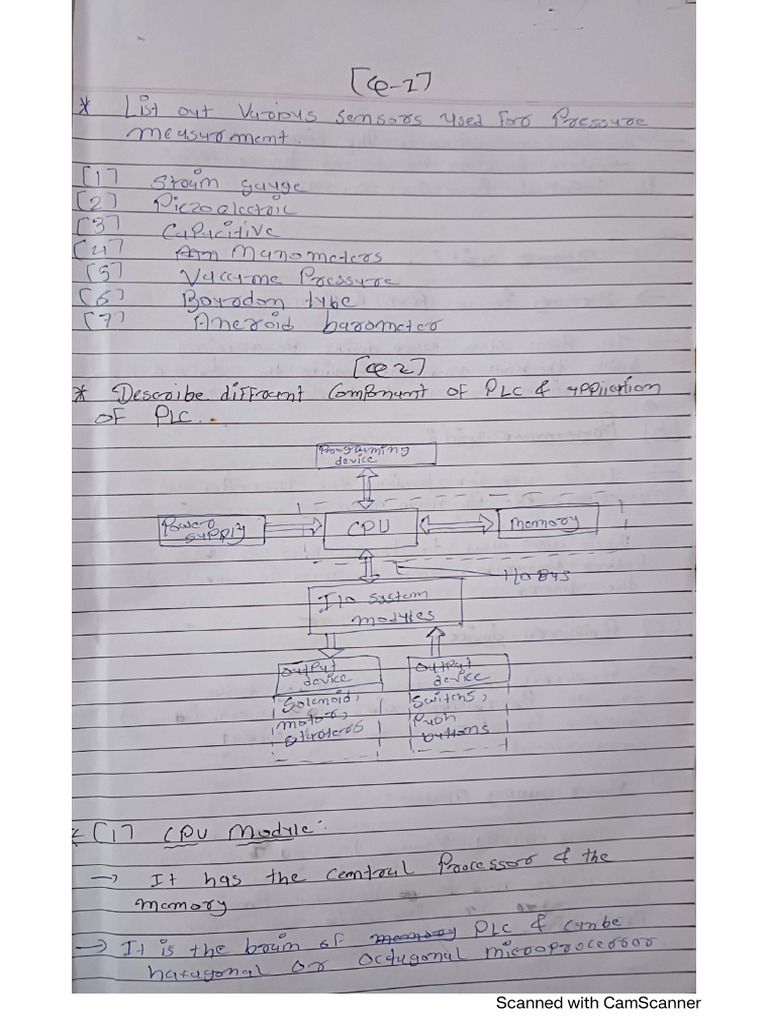 [Q-1]
* List out Various sensors used for Pressure
measurment.
[1] Strain gauge
[2] Piezoelectric
[3] Capacitive
[4] Manometers
[5] Vaccume Pressure
[6] Bourdon type
[7] Aneroid barometer
[Q 2]
* Describe diffrent Component of PLC & application
of PLC.
Programming
device
Power
supply
CPU
Memory
I/O Bus
I/O system
modules
Output
device
Output
device
Solenoid,
motor,
Switchs,
Push
buttons
[1] CPU Module:
→ It has the central Processor & the
memory
→ It is the brain of PLC & canbe
haxagonal or octagonal microprocessor
Scanned with CamScanner